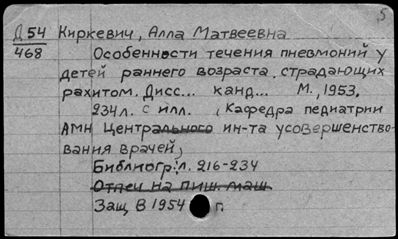 5
Д 54 Киркевич, Алла Матвеевна
468 Особенности течения пневмоний у
детей раннего возраста, страдающих
рахитом. Дисс... канд... М., 1953.
234 л. с илл. (Кафедра педиатрии
АМН Центрального ин-та усовершенство-
вания врачей)
Библиогр: л. 216-234
Отпеч на пиш. маш.
Защ В 1954 г.